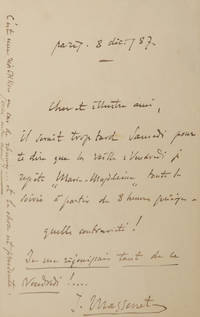 Paris, 8 déc. /87.
Cher et illustre ami,
il serait trop tard Samedi pour
te dire que la veille (Vendredi) je
répète "Marie-Magdeleine" toute la
soirée à partir de 8 heures précises.
quelle contrariété !
Je me réjouissais tant de ce
Vendredi !....
J. Massenet